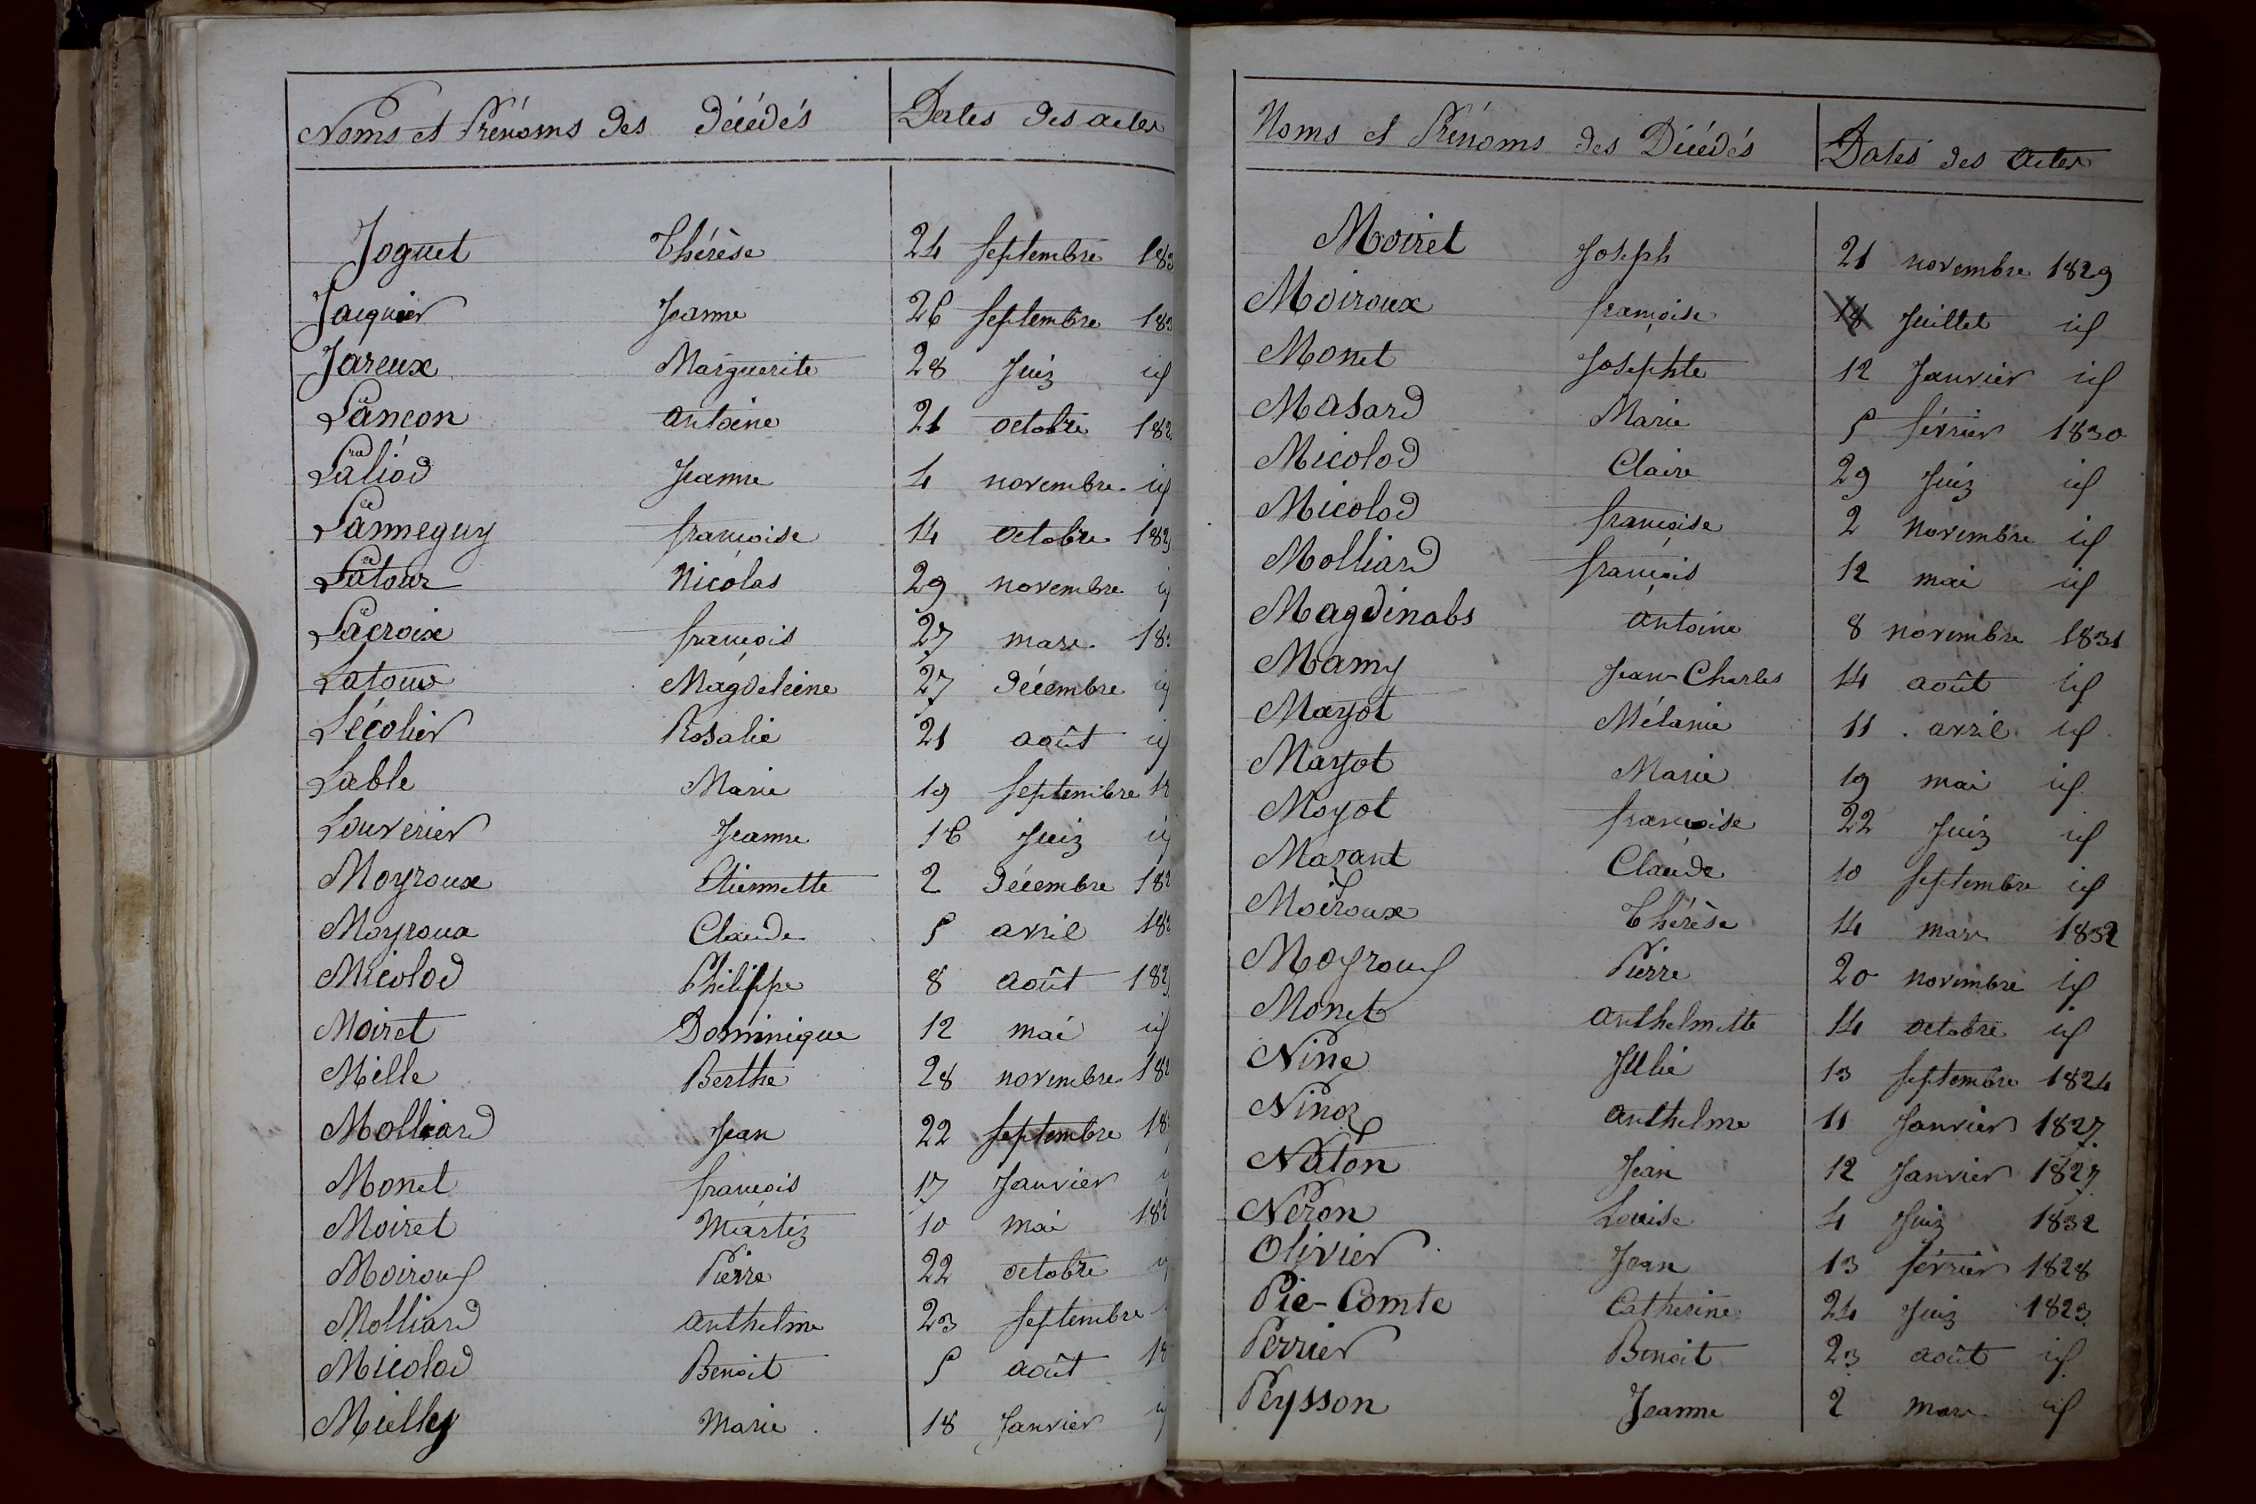 Noms et Prénoms des Décédés Dates des actes
Joguet Thérèse 24 septembre 183
Jacquier Jeanne 26 septembre 182
Jareux Marguerite 28 Juin id
Lançon antoine 21 octobre 182
Laliod Jeanne 4 novembre id
Lanneguy françoise 14 octobre 182
Latour Nicolas 29 novembre
Lacroix françois 27 mars 18
Latour Magdeleine 27 Décembre
Lécolier Rosalie 21 août
Lable Marie 19 septembre
Louverier Jeanne 16 Juin
Moyroux Etiennette 2 Décembre 182
Moyroux Claude 5 avril 182
Micolod Philippe 8 août 182
Moiret Dominique 12 mai id
Mille Berthe 28 novembre 182
Molliard Jean 22 septembre 18
Monet françois 17 Janvier
Moiret Martin 10 mai 182
Moiroux Pierre 22 octobre
Molliard anthelme 23 septembre
Micolod Benoit 5 août 18
Mielly Marie 18 Janvier
Noms et Prénoms des Décédés Dates des actes
Moiret Joseph 21 novembre 1829
Moiroux françoise 18 Juillet id
Monet Josephte 12 Janvier id
Masard Marie 5 février 1830
Micolod Claire 29 Juin id
Micolod françoise 2 novembre id
Molliard françois 12 mai id
Magdinabs antoine 8 novembre 1831
Mamy Jean-Charles 14 août id
Mayot Mélanie 11 avril id
Mayot Marie 19 mai id
Moyot françoise 22 Juin id
Mazant Claude 10 septembre id
Moiroux Thérèse 14 mars 1832
Moyroux Pierre 20 novembre id
Monet anthelmette 14 octobre id
Nine Julie 13 septembre 1824
Ninoz anthelme 11 Janvier 1827
Naton Jean 12 Janvier 1827
Néron Louise 4 Juin 1832
Olivier Jean 13 février 1828
Pie-Comte Catherine 24 Juin 1823
Perrier Benoit 23 août id
Peysson Jeanne 2 mars id